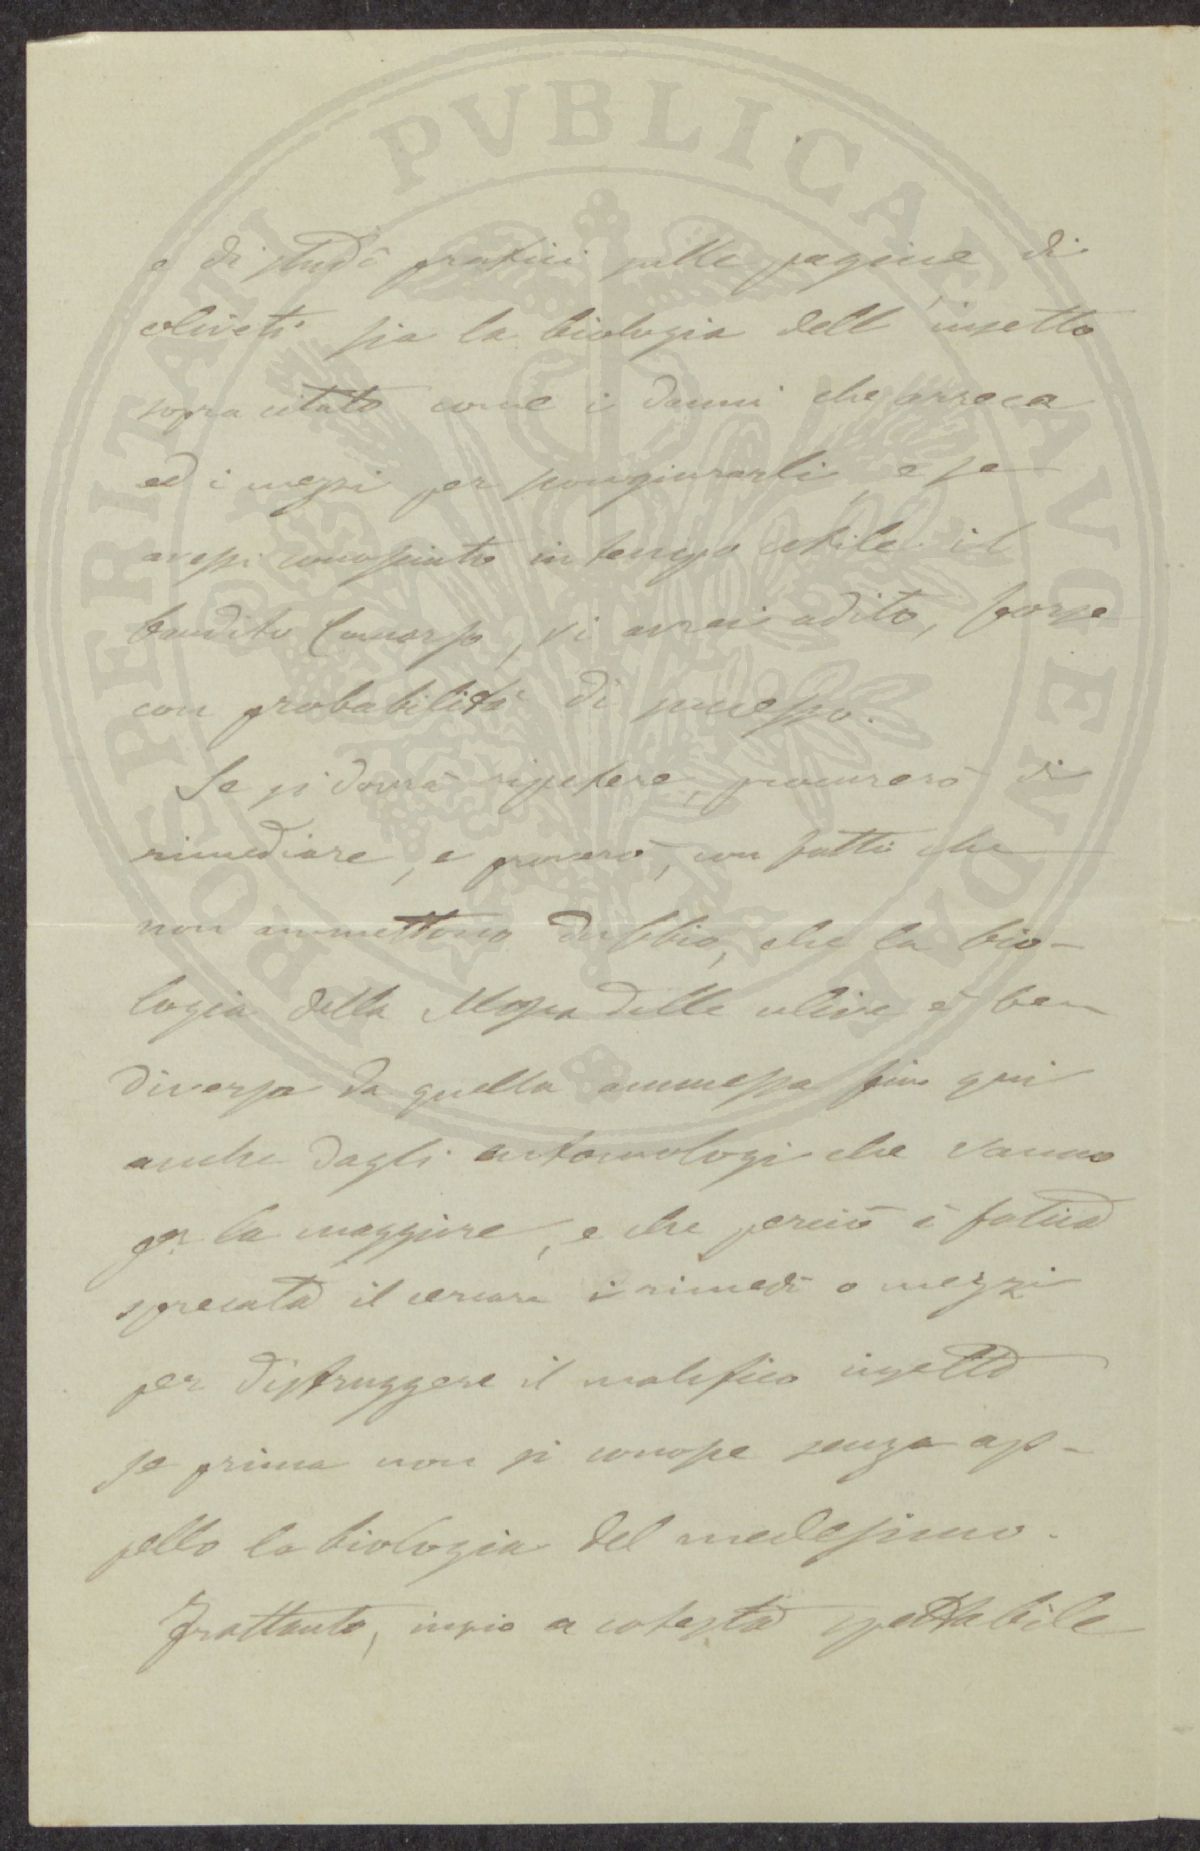 PROSPERITATI PVBLICAE AVGENDAE
e di studî pratici sulle pagine di
oliveti sia la biologia dell'insetto
sopra citato come i danni che arreca
ed i mezzi per scongiurarli, e se
avessi conosciuto in tempo utile il
bandito Concorso, vi avrei adito, forse
con probabilità di successo.
Se si dovrà ripetere, procurerò di
rimediare, e proverò, con fatti che
non ammettono dubbio, che la bio-
logia della Mosca delle ulive è ben
diversa da quella ammessa fin qui
anche dagli entomologi che vanno
per la maggiore, e che perciò è fatica
sprecata il cercare i rimedî o mezzi
per distruggere il malefico insetto
se prima non si conosce senza ap-
pello la biologia del medesimo.
Frattanto, invio a cotesta spettabile